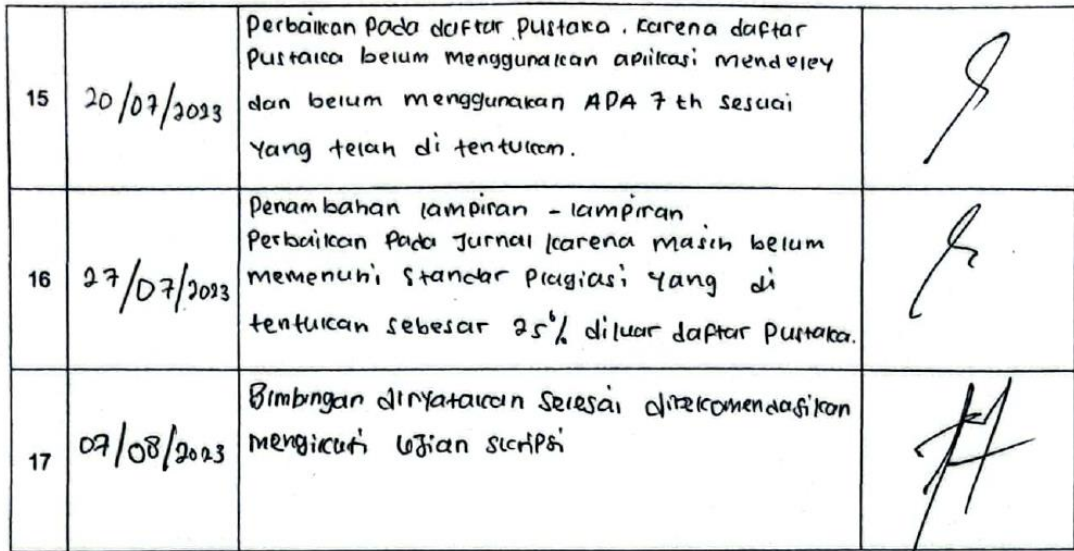 Perbaikan Pada daftar pustaka. Karena daftar
15 20/07/2023 Pustaka belum menggunakan aplikasi mendeley
dan belum menggunakan APA 7 th sesuai
yang telah di tentukan.
Penambahan lampiran - lampiran
Perbaikan Pada Jurnal karena masih belum
16 27/07/2023 memenuhi Standar Plagiasi yang di
tentukan sebesar 25% diluar daftar Pustaka.
Bimbingan dinyatakan selesai direkomendasikan
17 07/08/2023 mengikuti Ujian skripsi